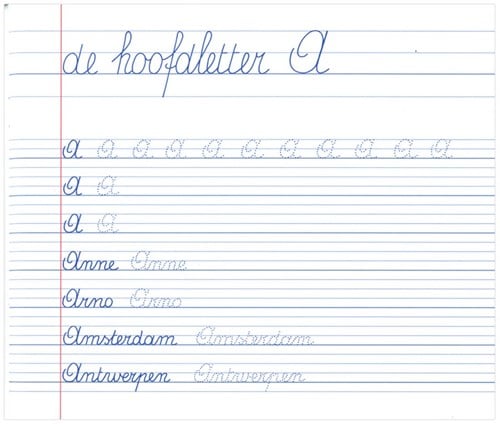 de hoofdletter A
A A A A A A A A A A A
A A
A A
Anne Anne
Arno Arno
Amsterdam Amsterdam
Antwerpen Antwerpen